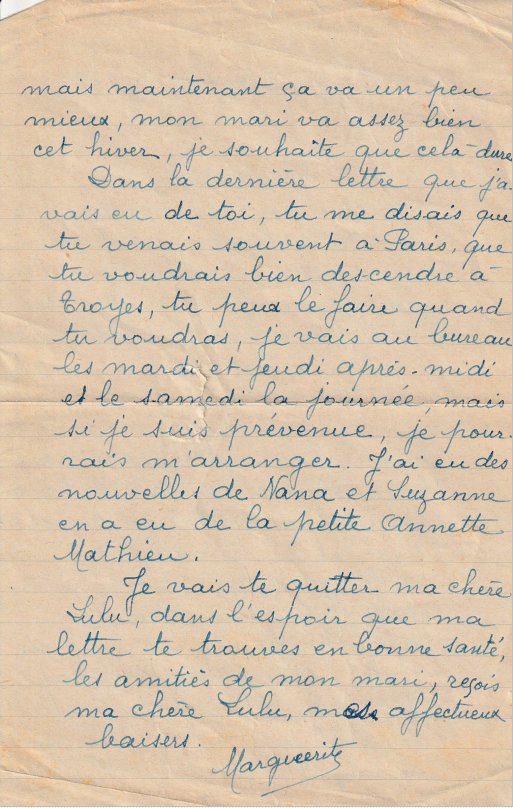 mais maintenant ça va un peu
mieux, mon mari va assez bien
cet hiver, je souhaite que cela dure
Dans la dernière lettre que j'a-
vais eu de toi, tu me disais que
tu venais souvent à Paris, que
tu voudrais bien descendre à
Troyes, tu peux le faire quand
tu voudras, je vais au bureau
les mardi et jeudi après-midi
et le samedi la journée, mais
si je suis prévenue, je pour-
rais m'arranger. J'ai eu des
nouvelles de Nana et Suzanne
en a eu de la petite Annette
Mathieu.
Je vais te quitter ma chère
Lulu, dans l'espoir que ma
lettre te trouves en bonne santé,
les amitiés de mon mari, reçois
ma chère Lulu, mes affectueux
baisers.
Marguerite